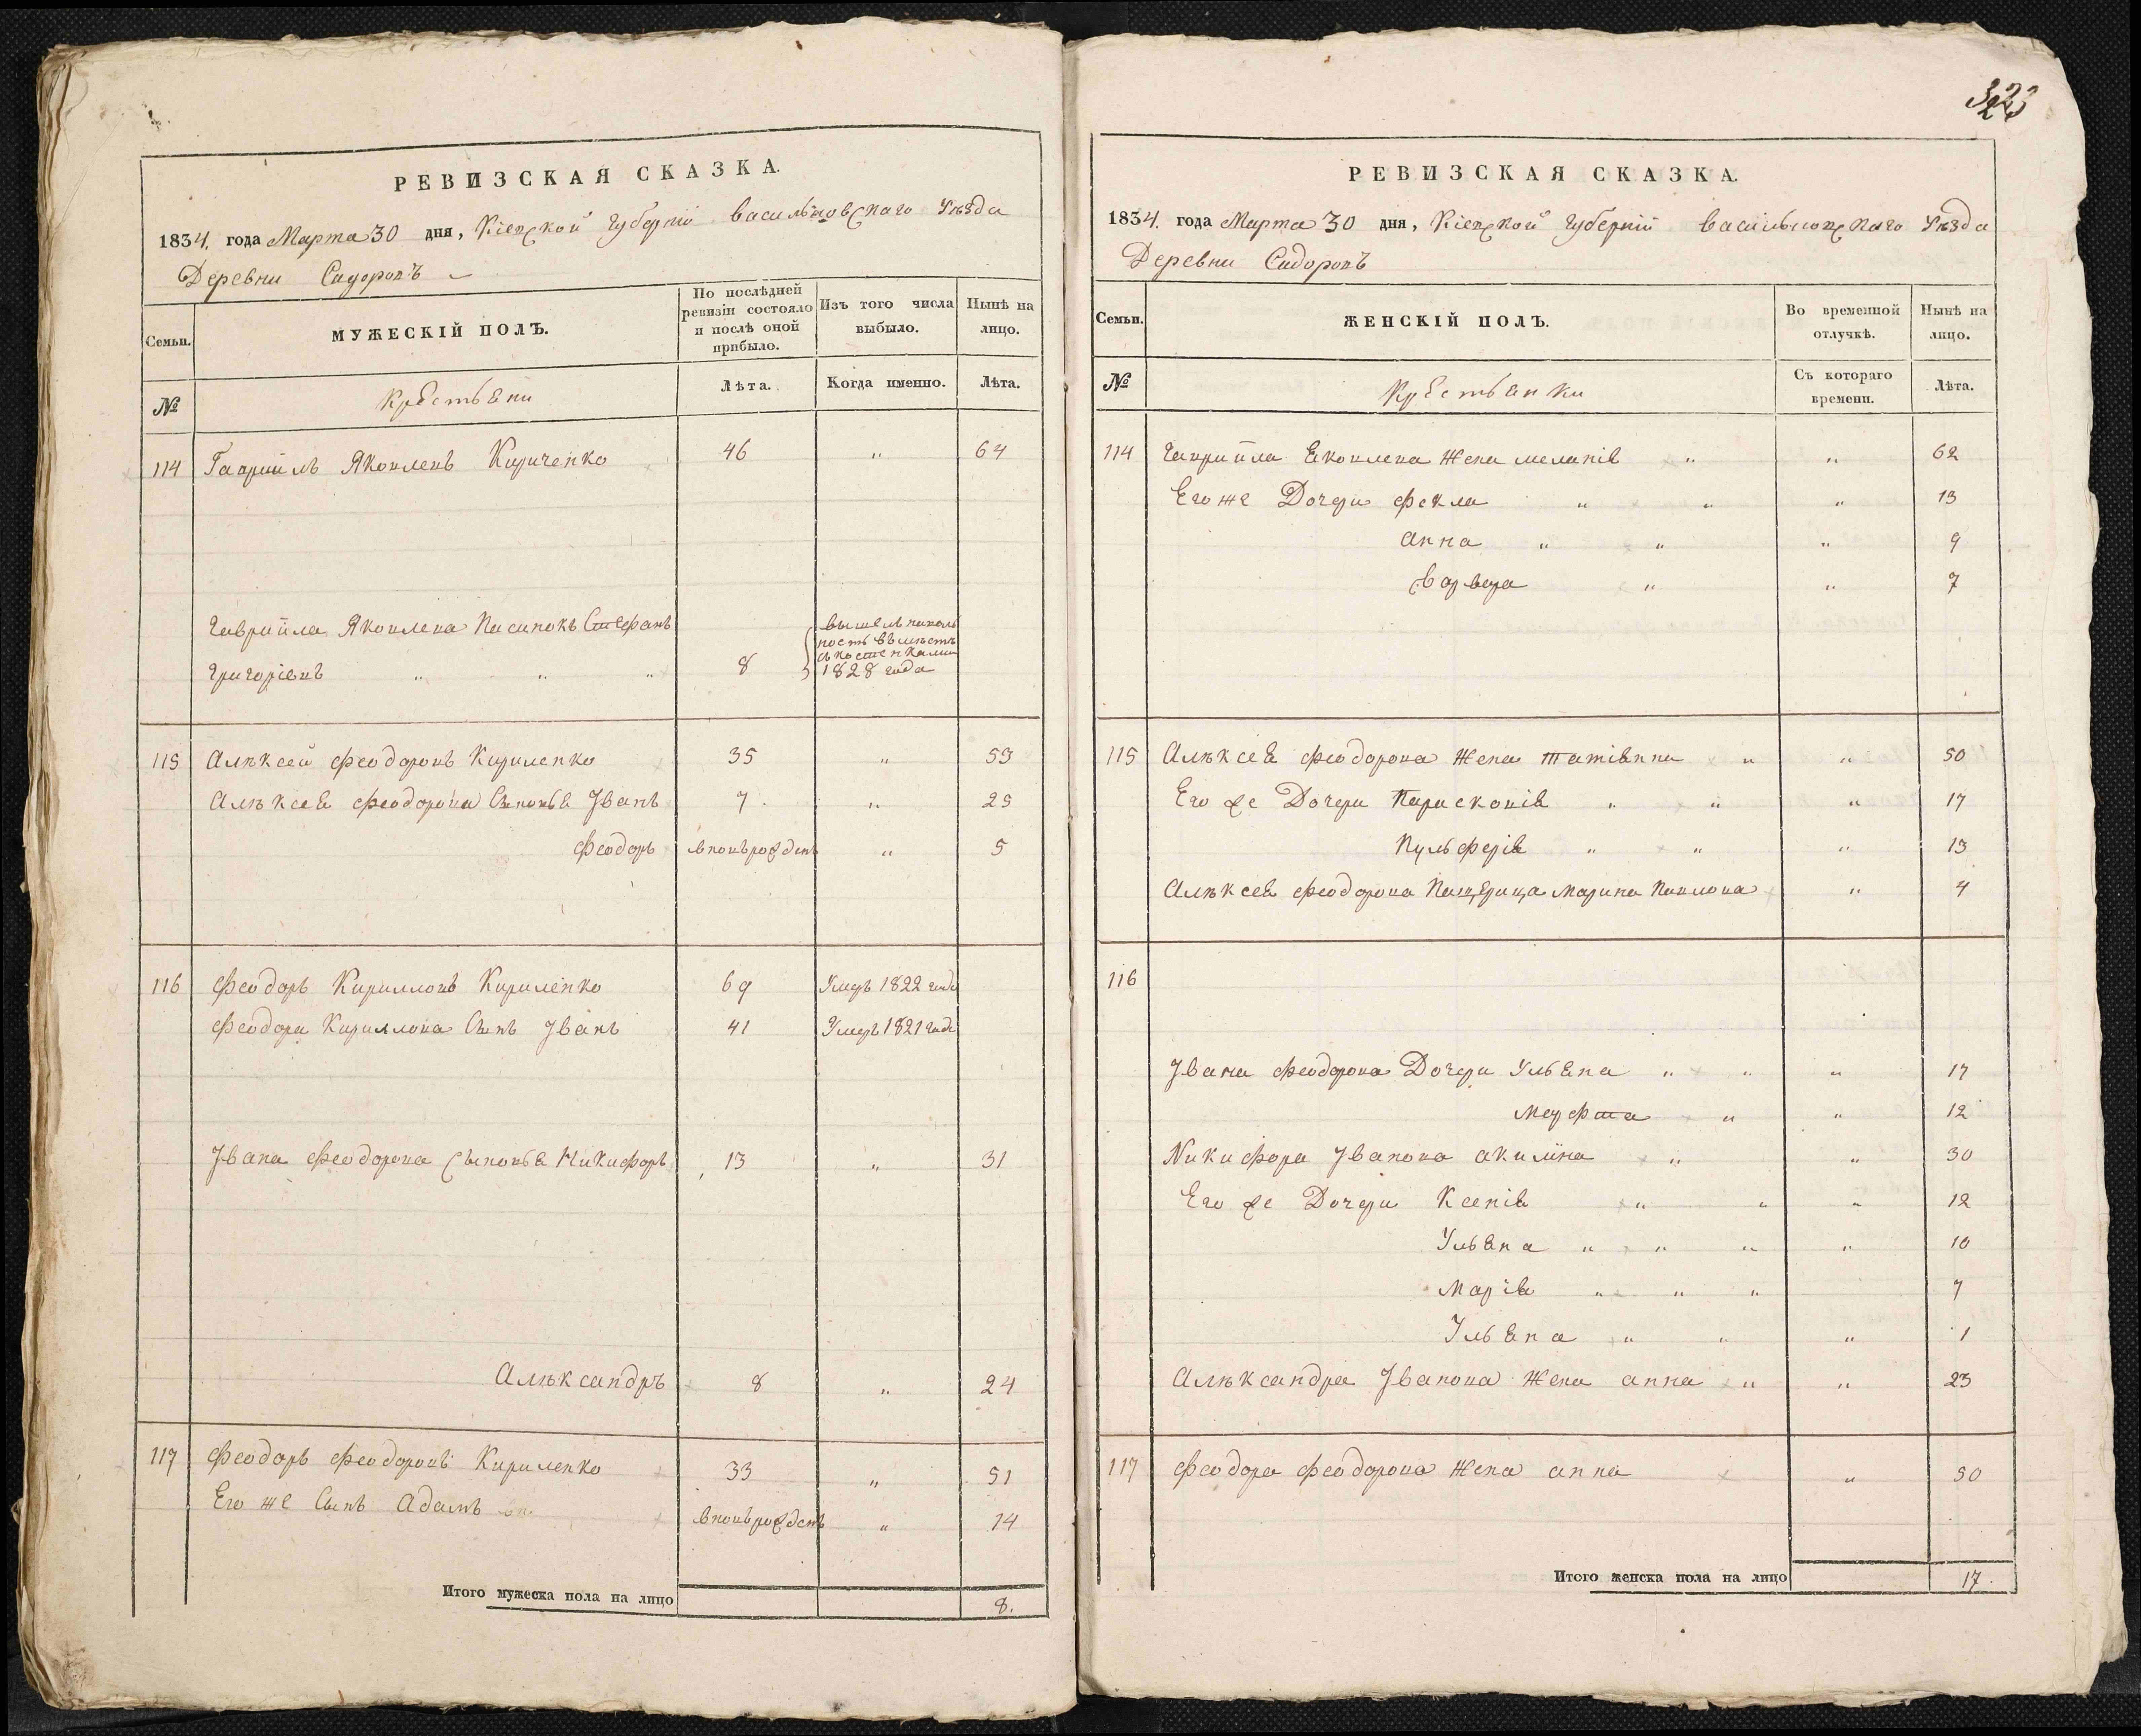 323
РЕВИЗСКАЯ СКАЗКА.
1834. года Марта 30 дня, Кіевской Губерніи Васильковскаго Уѣзда
Деревни Сидоровъ
Семьи.
МУЖЕСКІЙ ПОЛЪ.
По послѣдней ревизіи состояло и послѣ оной прибыло.
Изъ того числа выбыло.
Нынѣ на лицо.
№
Крестьяни
Лѣта.
Когда именно.
Лѣта.
114 Гавриилъ Яковлевъ Кириченко 46 " 64
Гавриила Яковлева Пасинокъ Стефанъ
Григоріевъ " " " 8
1828 года
115 Алѣксей Феодоровъ Кириленко 35 " 53
Алѣксея Феодорова Сыновья Іванъ 7 " 25
Феодоръ вновьрожденъ " 5
116 Феодоръ Кирилловъ Кириленко 69 Умеръ 1822 года
Феодора Кириллова Сынъ Іванъ 41 Умеръ 1821 года
Івана Феодорова Сыновья Никифоръ 13 " 31
Алѣксандръ 8 " 24
117 Феодоръ Феодоровъ Кириленко 33 " 51
Его же Сынъ Адамъ вновьрожденъ " 14
Итого мужеска пола на лицо 8.
РЕВИЗСКАЯ СКАЗКА.
1834. года Марта 30 дня, Кіевской Губерніи Васильковскаго Уѣзда
Деревни Сидоровъ
Семьи.
ЖЕНСКІЙ ПОЛЪ.
Во временной отлучкѣ.
Нынѣ на лицо.
№
Крестьянки
Съ котораго времени.
Лѣта.
114 Гавриила Яковлева Жена меланія " " 62
Его же Дочери Фекла " " " 13
анна " " " 9
варвара " " 7
115 Алѣксея Феодорова Жена Татіянна " " 50
Его же Дочери Парисковія " " " 17
Пульферія " " " 13
Алѣксея Феодорова Пащерица Марина Павлова " 4
116
Івана Феодорова Дочери Ульяна " " " 17
Марфта " " 12
Никифора Іванова акилина " " 30
Его же Дочери Ксенія " " " 12
Ульяна " " " " 10
Марія " " " 7
Ульяна " " " 1
Алѣксандра Іванова Жена анна " " 23
117 Феодора Феодорова Жена анна " 50
Итого женска пола на лицо 17.